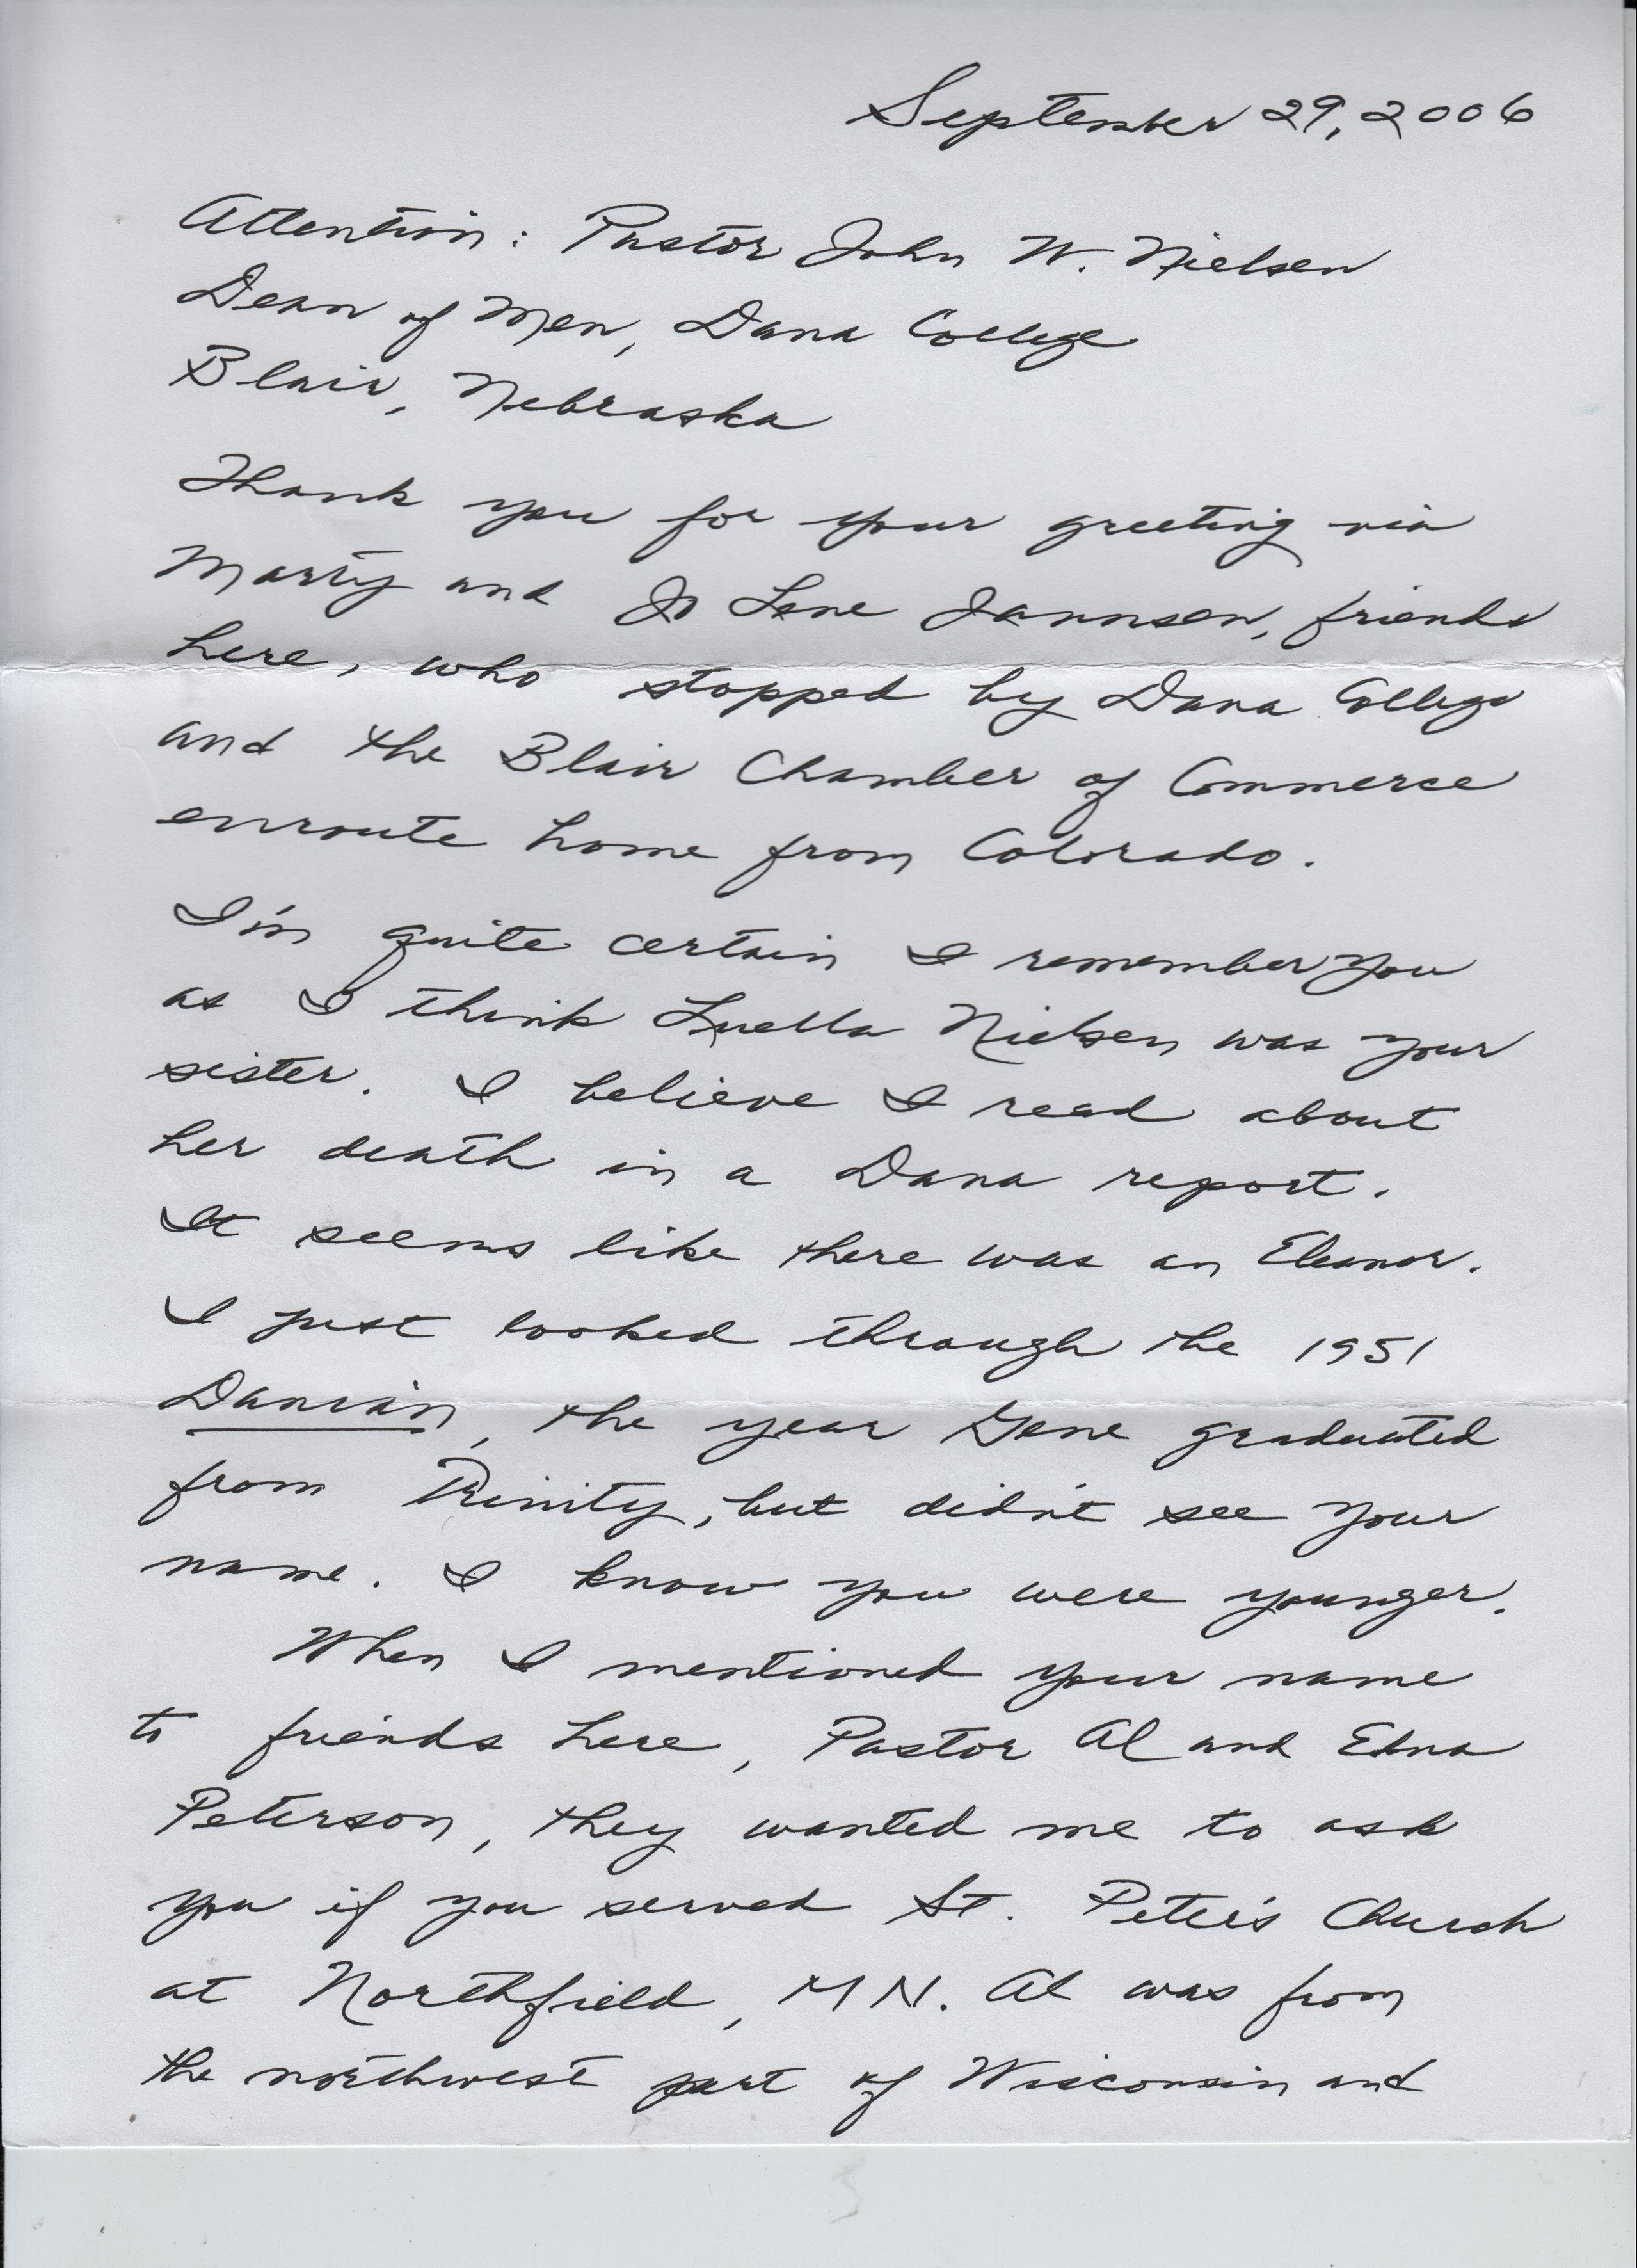 September 29, 2006
Attention: Pastor John W. Nielsen
Dean of Men, Dana College
Blair, Nebraska
Thank you for your greeting via
Marty and Jo Lene Jannsen, friends
here, who stopped by Dana College
and the Blair Chamber of Commerce
enroute home from Colorado.
I'm quite certain I remember you
as I think Luella Nielsen was your
sister. I believe I read about
her death in a Dana report.
It seems like there was an Eleanor.
I just looked through the 1951
Danian, the year Gene graduated
from Trinity, but didn't see your
name. I know you were younger.
When I mentioned your name
to friends here, Pastor Al and Edna
Peterson, they wanted me to ask
you if you served St. Peter's Church
at Northfield, MN. Al was from
the northwest part of Wisconsin and